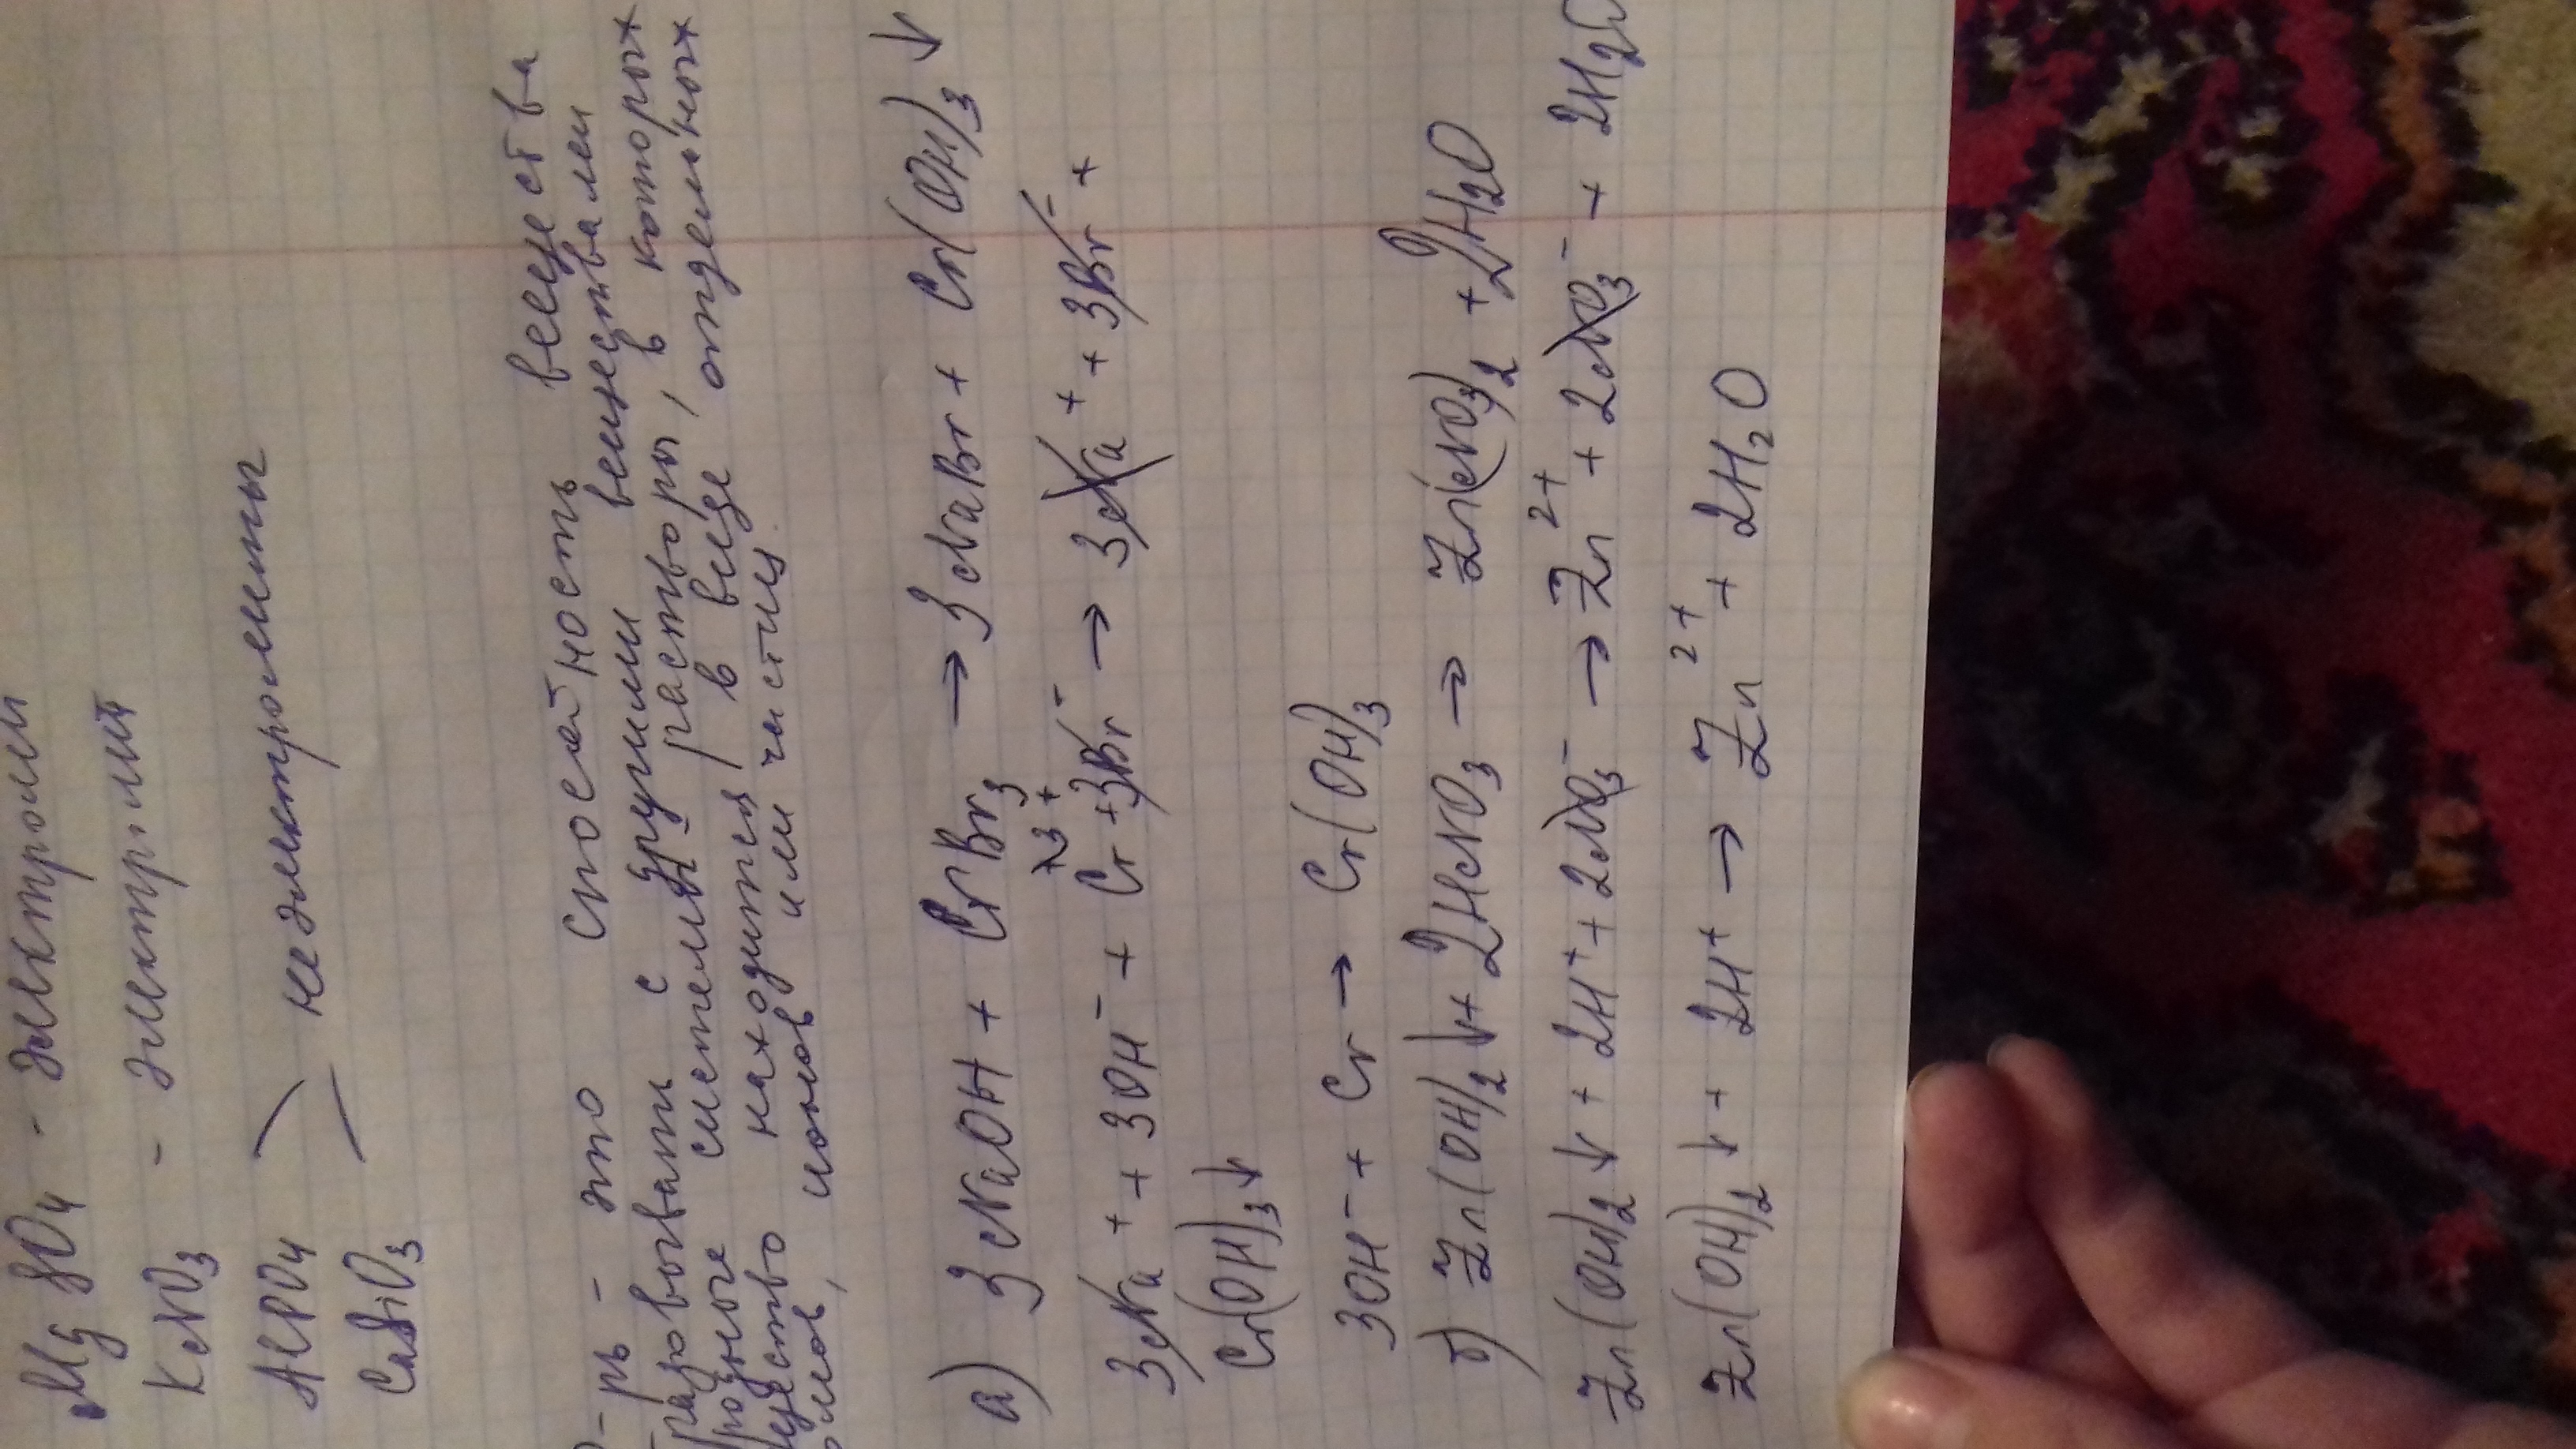 MgSO4 - электролит
KNO3 - электролит
AlPO4
CaSiO3 > неэлектролиты
р-рь - это способность вещества
образовывать с другими веществами
однородные системы растворы, в которых
вещество находится в виде отдельных
атомов, ионов или частиц.
а) 3NaOH + CrBr3 → 3NaBr + Cr(OH)3↓
3Na⁺ + 3OH⁻ + Cr³⁺ + 3Br⁻ → 3Na⁺ + 3Br⁻ +
Cr(OH)3↓
3OH⁻ + Cr → Cr(OH)3
б) Zn(OH)2↓ + 2HNO3 → Zn(NO3)2 + 2H2O
Zn(OH)2↓ + 2H⁺ + 2NO3⁻ → Zn²⁺ + 2NO3⁻ + 2H2O
Zn(OH)2↓ + 2H⁺ → Zn²⁺ + 2H2O